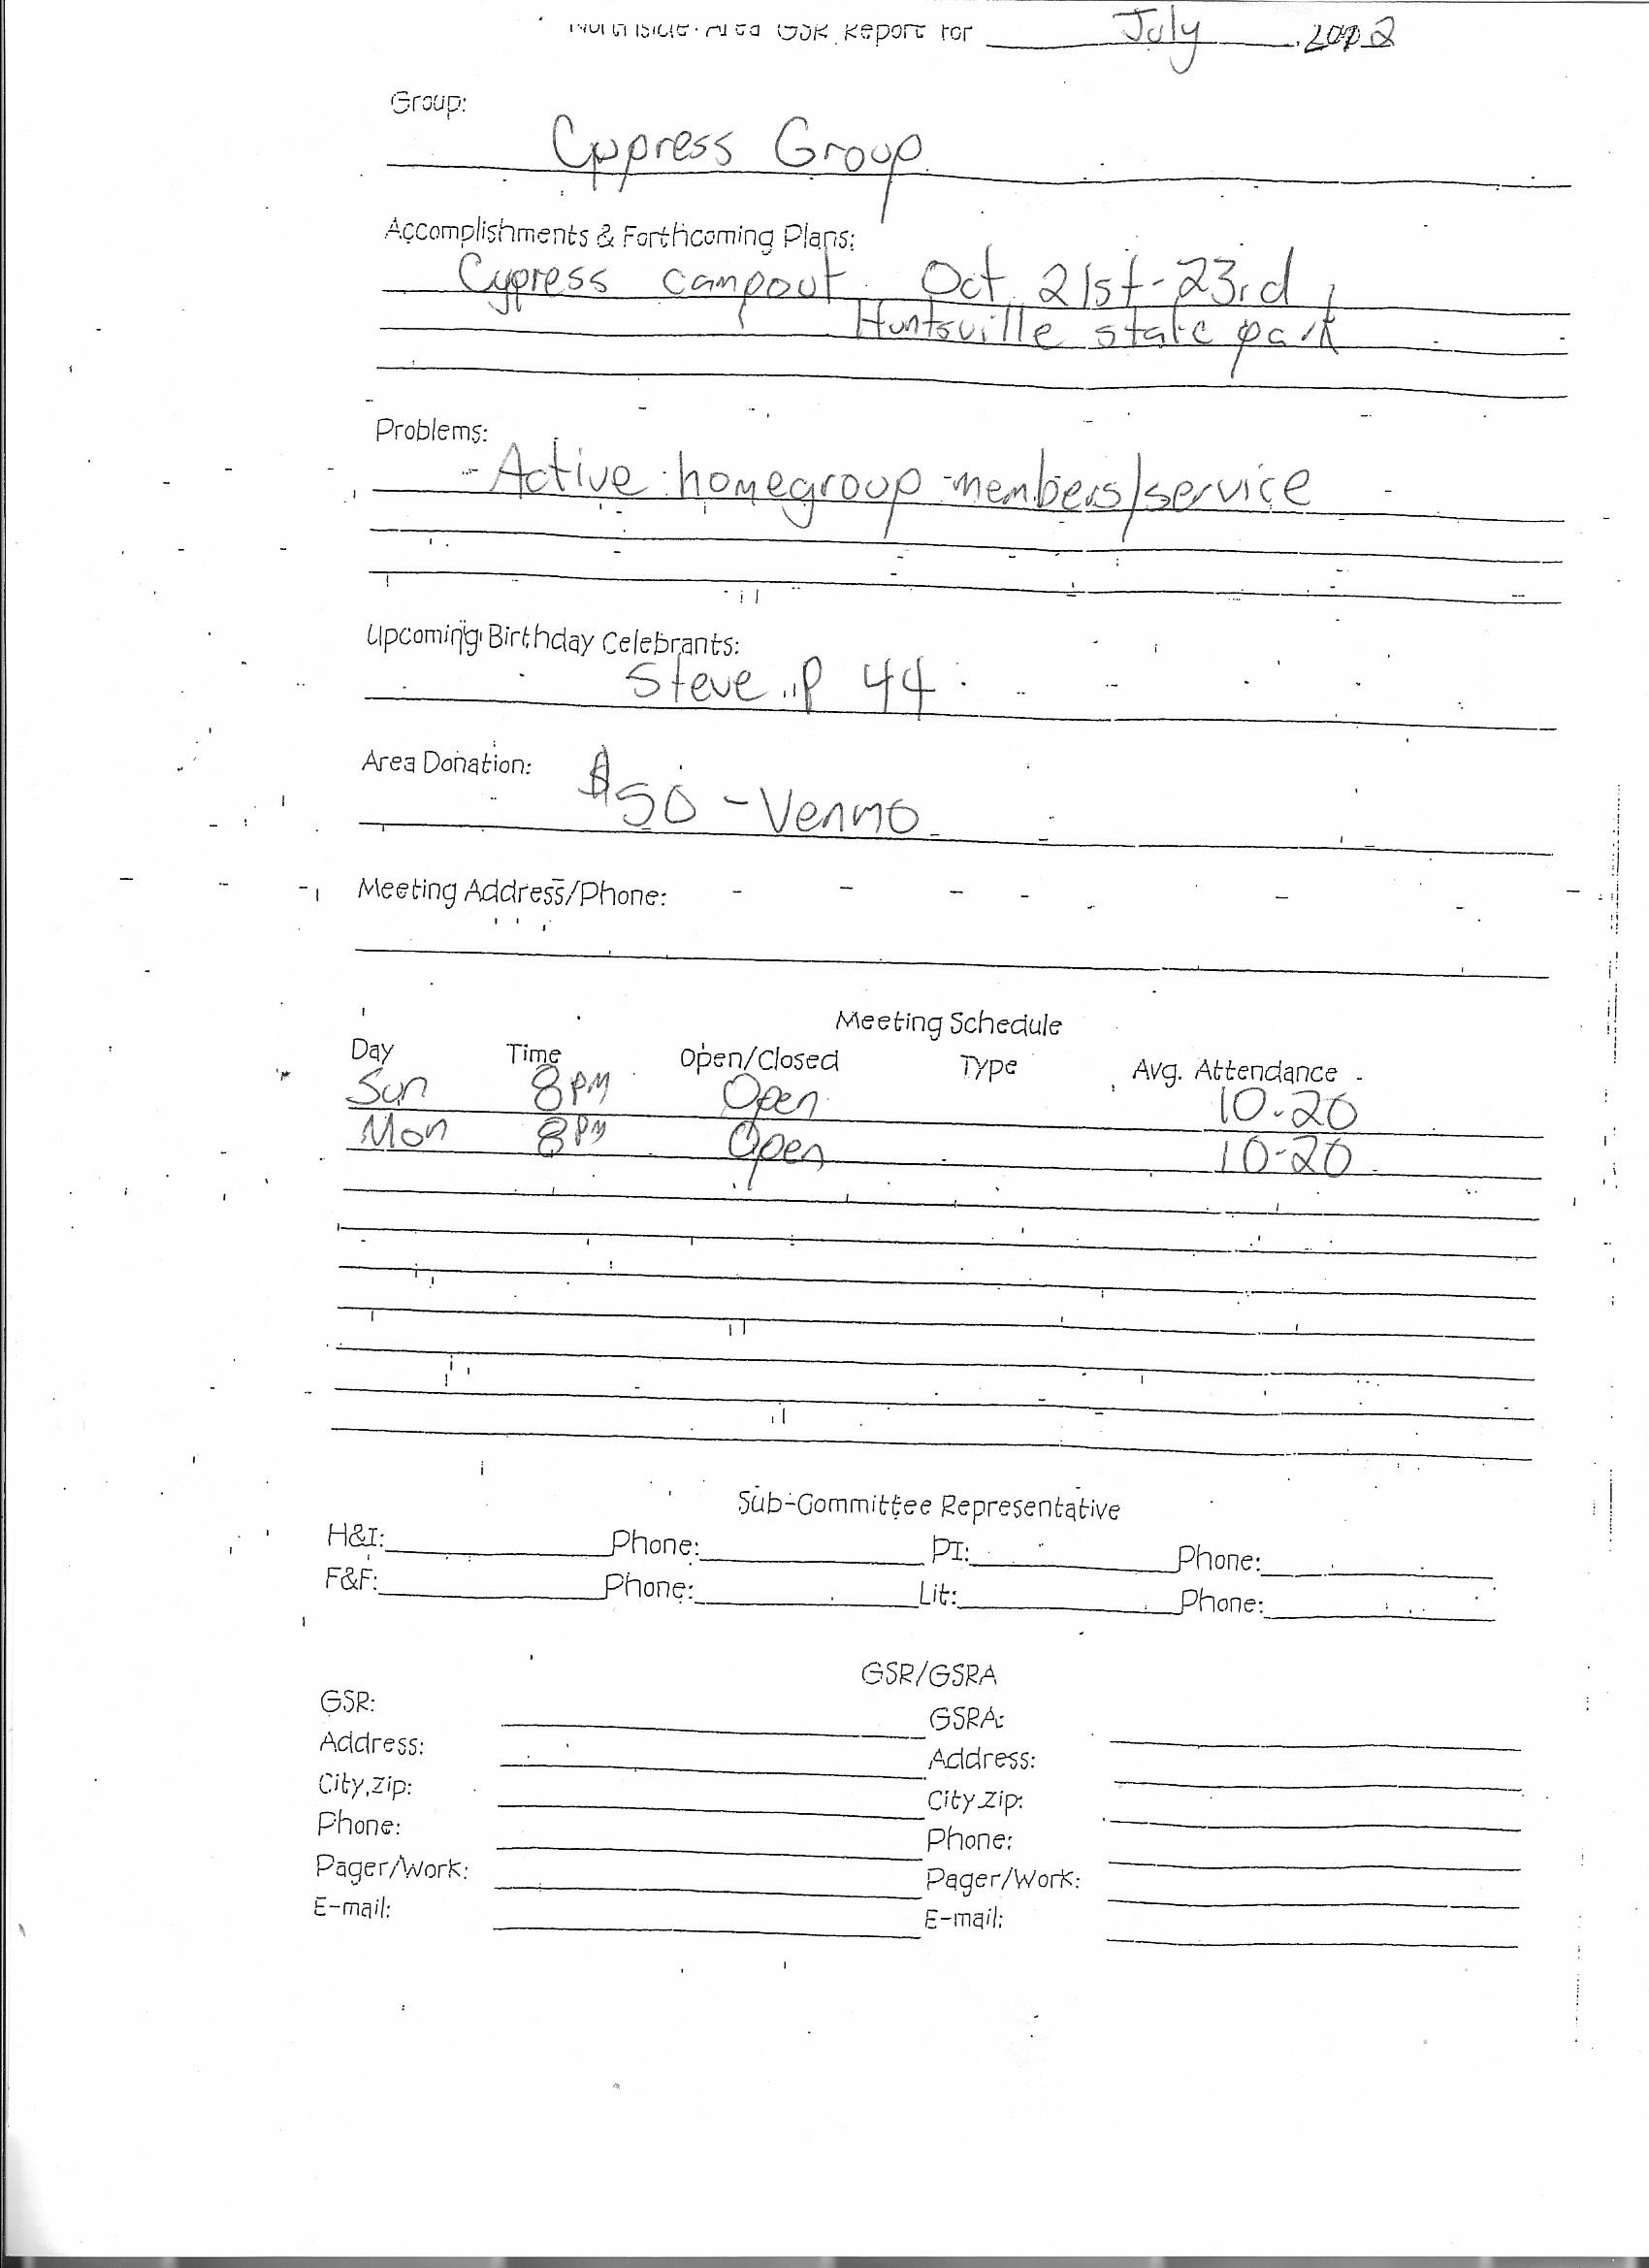 Area GSR Report for July, 2002
Group:
Cypress Group
Accomplishments & Forthcoming Plans:
Cypress campout Oct 21st-23rd,
Huntsville state park
Problems:
- Active homegroup members/service
Upcoming Birthday Celebrants:
Steve P 44
Area Donation: $50 - Venmo
Meeting Address/Phone:
Meeting Schedule
Day Time Open/Closed Type Avg. Attendance
Sun 8PM Open 10-20
Mon 8PM Open 10-20
Sub-Committee Representative
H&I: Phone: PI: Phone:
F&F: Phone: Lit: Phone:
GSR/GSRA
GSR: GSRA:
Address: Address:
City,zip: City,zip:
Phone: Phone:
Pager/Work: Pager/Work:
E-mail: E-mail: